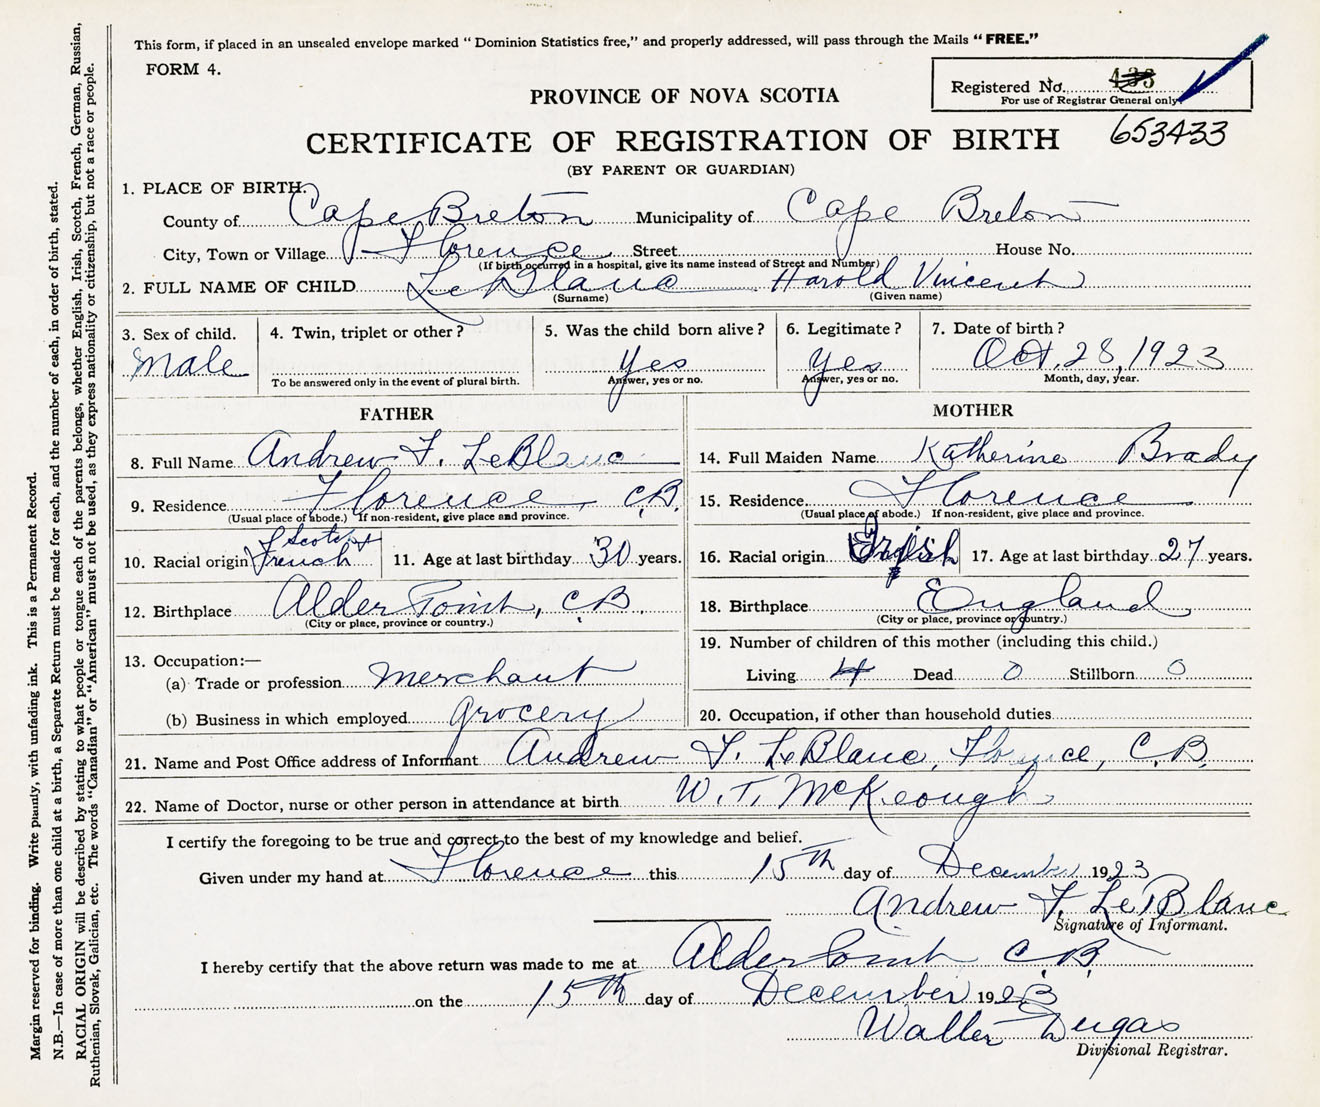 This form, if placed in an unsealed envelope marked "Dominion Statistics free," and properly addressed, will pass through the Mails "FREE."
FORM 4.
Registered No. 433
For use of Registrar General only
PROVINCE OF NOVA SCOTIA
CERTIFICATE OF REGISTRATION OF BIRTH 653433
(BY PARENT OR GUARDIAN)
1. PLACE OF BIRTH.
County of Cape Breton Municipality of Cape Breton
City, Town or Village Florence Street House No.
(If birth occurred in a hospital, give its name instead of Street and Number)
2. FULL NAME OF CHILD LeBlanc Harold Vincent
(Surname) (Given name)
3. Sex of child. 4. Twin, triplet or other? 5. Was the child born alive? 6. Legitimate? 7. Date of birth?
Male Yes Yes Oct. 28, 1923
To be answered only in the event of plural birth. Answer, yes or no. Answer, yes or no. Month, day, year.
FATHER MOTHER
8. Full Name Andrew F. LeBlanc 14. Full Maiden Name Katherine Brady
9. Residence Florence, C.B. 15. Residence Florence
(Usual place of abode.) If non-resident, give place and province. (Usual place of abode.) If non-resident, give place and province.
Scotch
10. Racial origin French 11. Age at last birthday 30 years. 16. Racial origin 17. Age at last birthday 27 years.
12. Birthplace Alder Point, C.B. 18. Birthplace England
(City or place, province or country.) (City or place, province or country.)
13. Occupation:— 19. Number of children of this mother (including this child.)
(a) Trade or profession Merchant Living 4 Dead 0 Stillborn 0
(b) Business in which employed Grocery 20. Occupation, if other than household duties
21. Name and Post Office address of Informant Andrew F. LeBlanc, Florence, C.B.
22. Name of Doctor, nurse or other person in attendance at birth W. T. McKeough
I certify the foregoing to be true and correct to the best of my knowledge and belief.
Given under my hand at Florence this 15th day of December 1923
Andrew F. LeBlanc
Signature of Informant.
I hereby certify that the above return was made to me at Alder Point C.B.
on the 15th day of December 1923
Walter Dugas
Divisional Registrar.
Margin reserved for binding. Write plainly, with unfading ink. This is a Permanent Record.
N.B.—In case of more than one child at a birth, a Separate Return must be made for each, and the number of each, in order of birth, stated.
RACIAL ORIGIN will be described by stating to what people or tongue each of the parents belongs, whether English, Irish, Scotch, French, German, Russian,
Ruthenian, Slovak, Galician, etc. The words "Canadian" or "American" must not be used, as they express nationality or citizenship, but not a race or people.